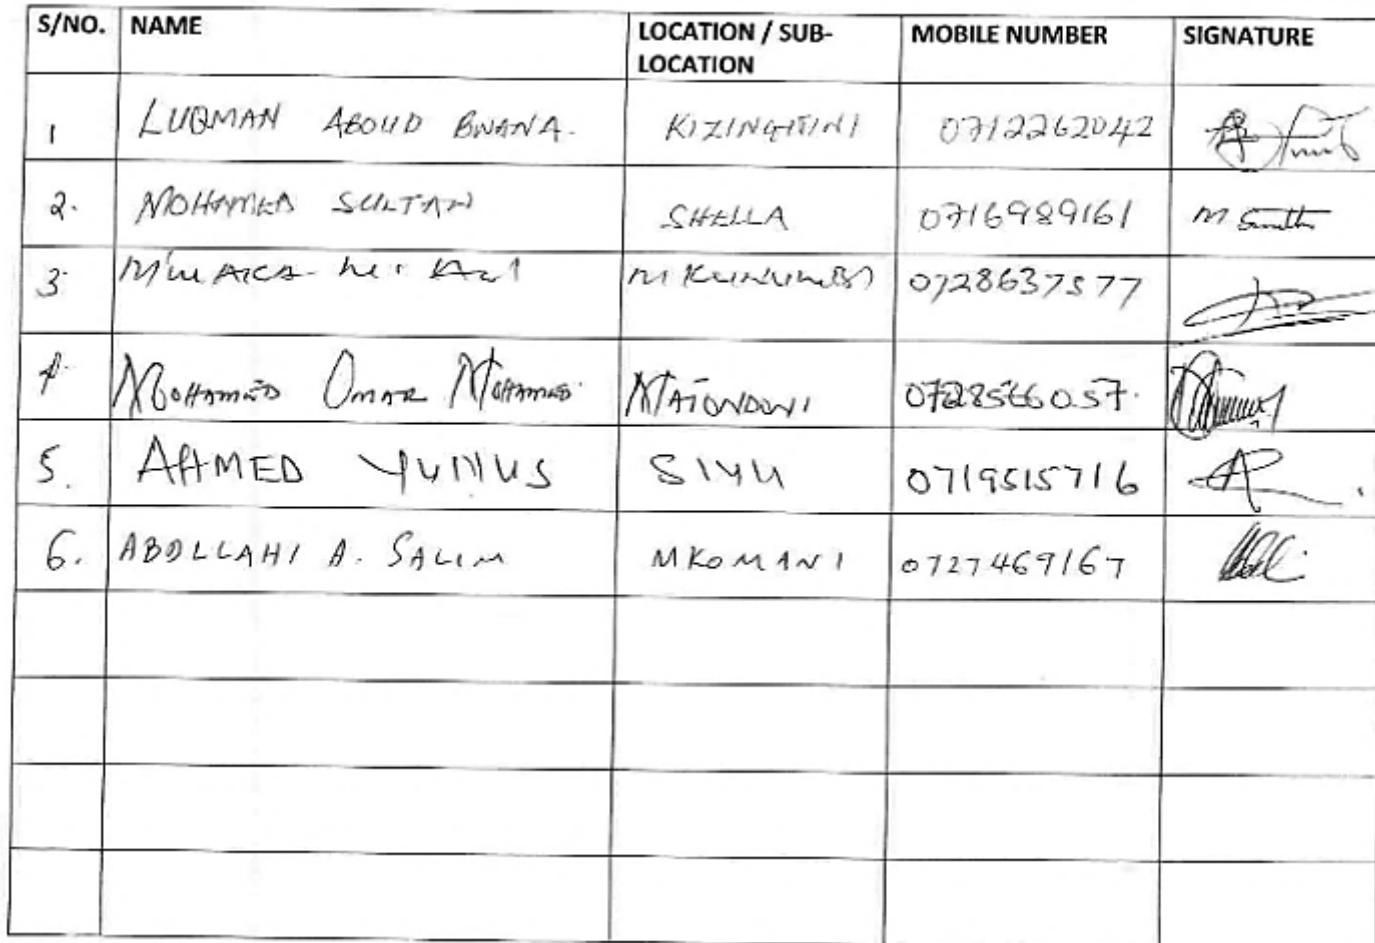 S/NO. NAME LOCATION / SUB- MOBILE NUMBER SIGNATURE
LOCATION
1 LUQMAN ABOUD BWANA. KIZINGITINI 0712262042
2. MOHAMED SULTAN SHELLA 0716989161
3 0728637577
4. MOHAMED OMAR MOHAMED MATONDONI 0728566057.
5. AHMED YUNUS SIYU 0719515716
6. ABDLLAHI A. SALIM MKOMANI 0727469167